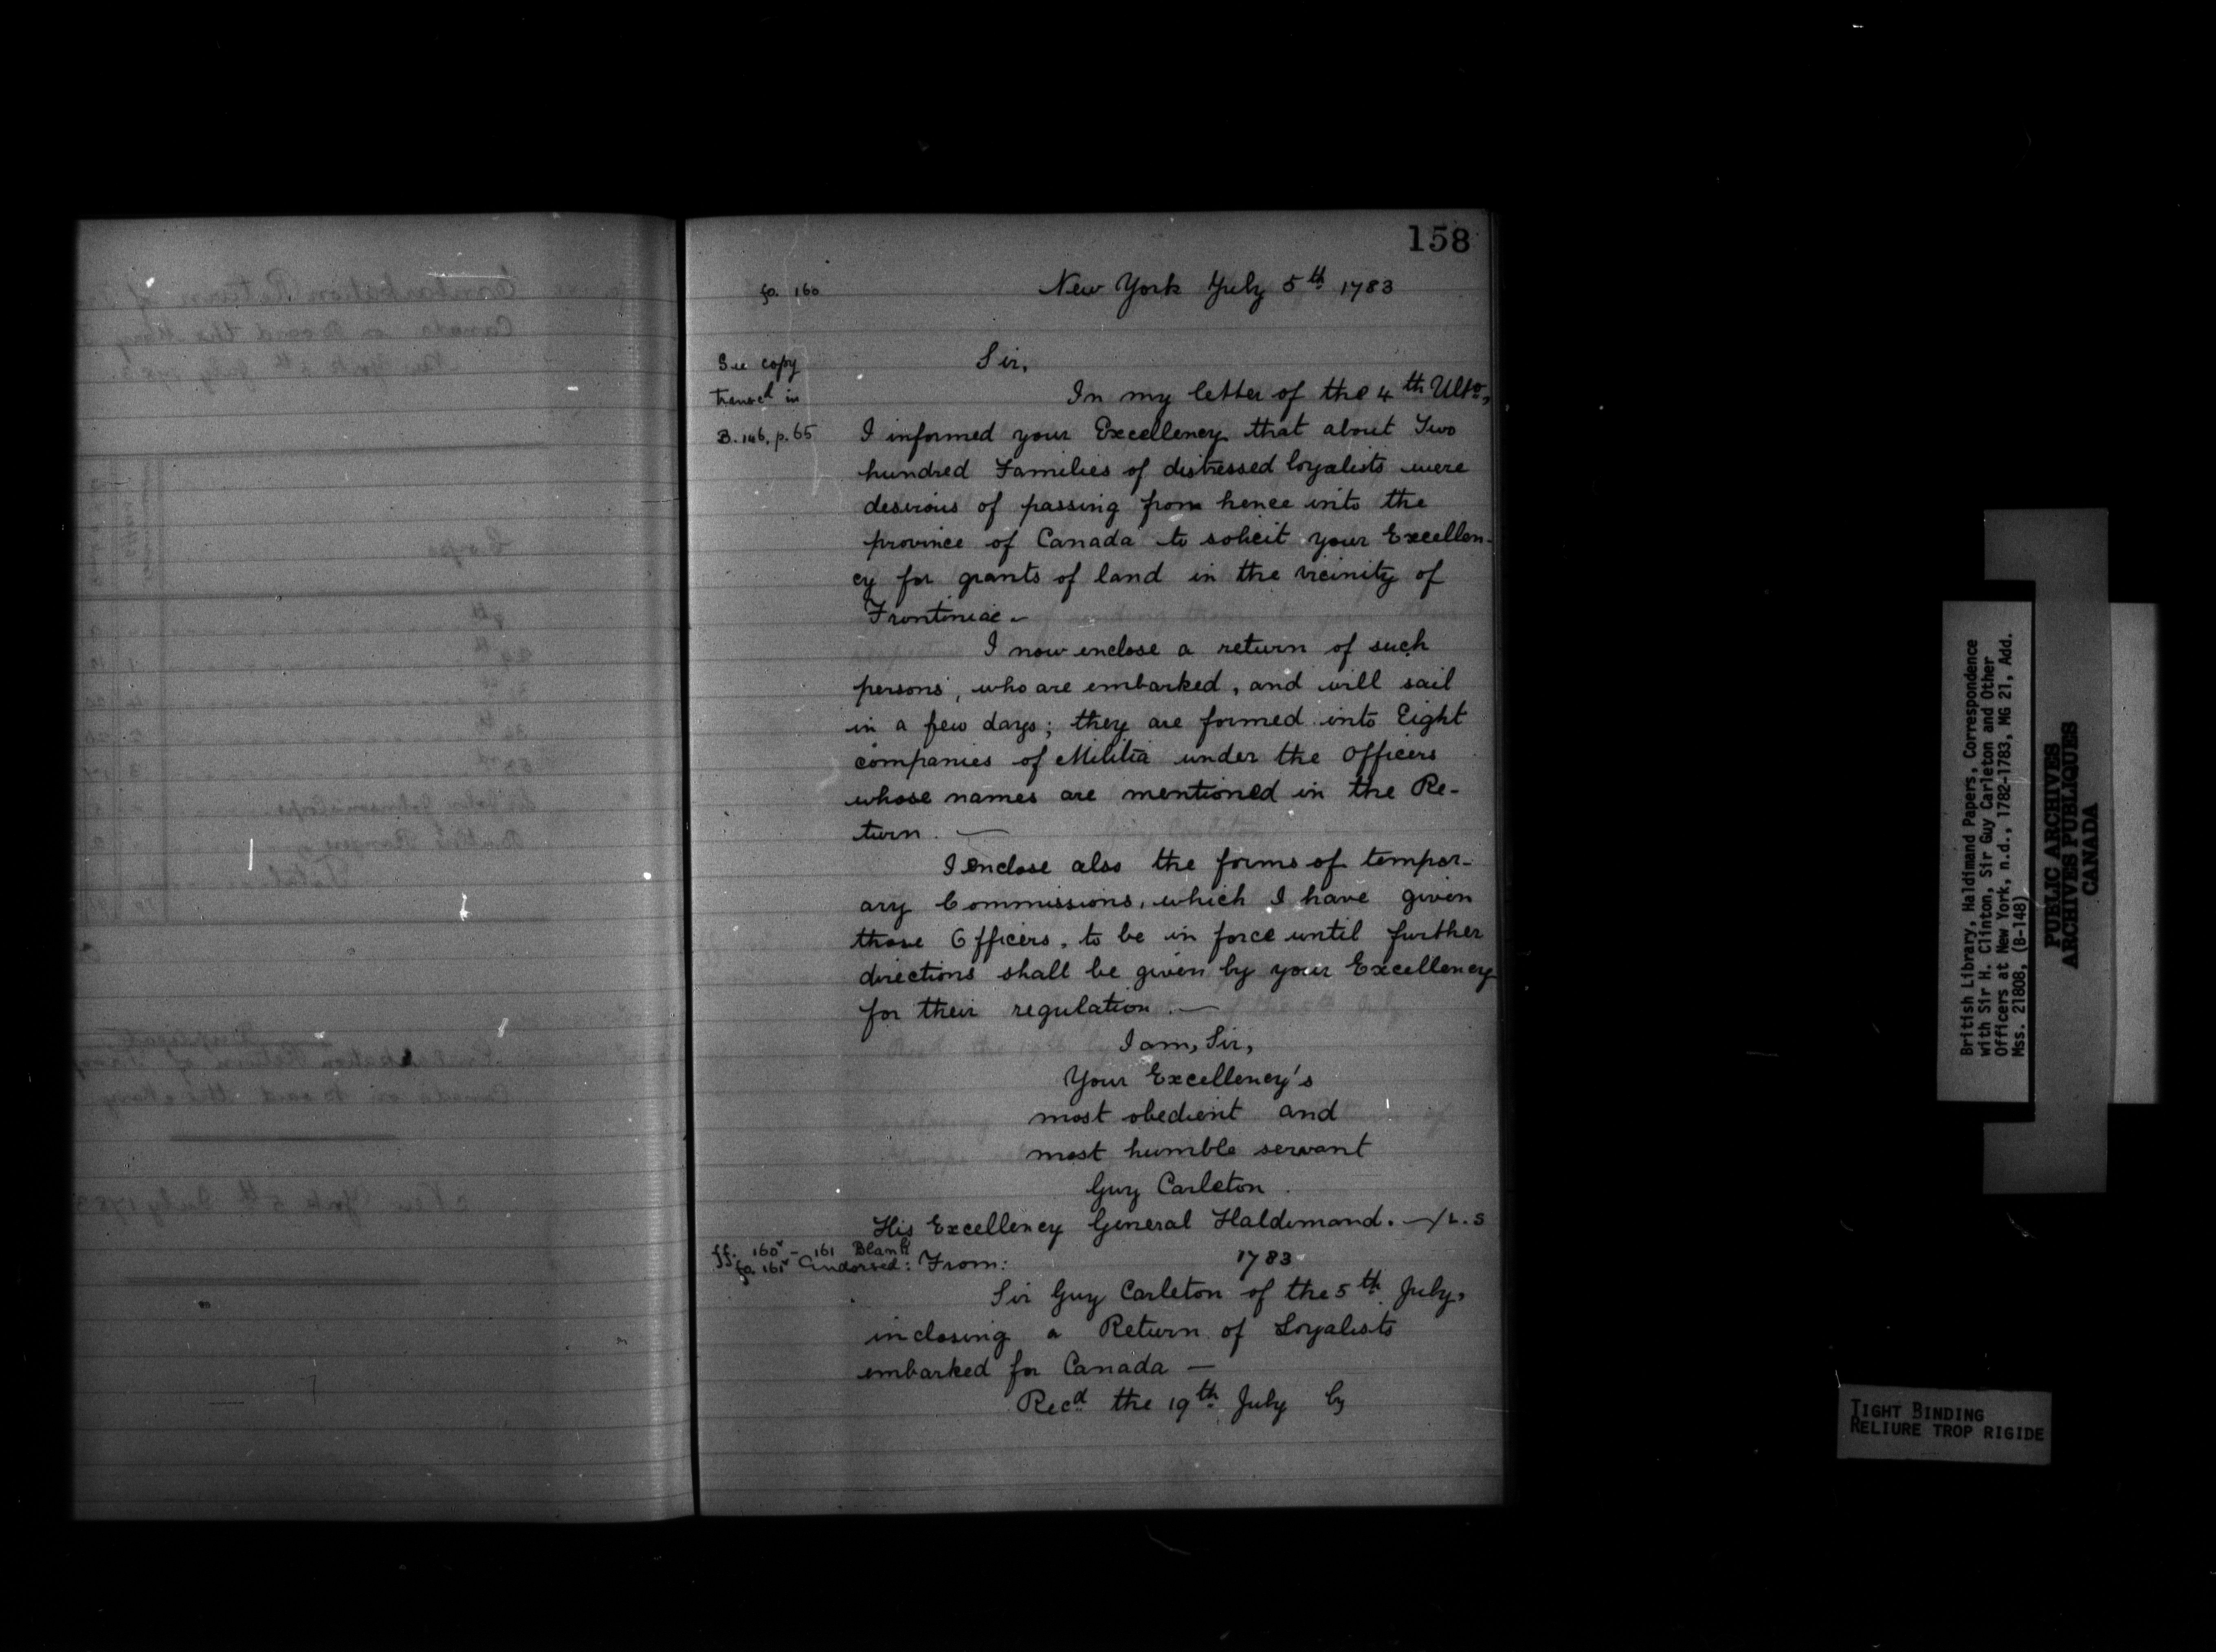 158
fo. 160
New York July 5th 1783
See copy
transcd in
B.146, p.65
Sir,
In my letter of the 4th Ulto,
I informed your Excellency that about Two
hundred Families of distressed loyalists were
desirous of passing from hence into the
province of Canada to solicit your Excellen-
cy for grants of land in the vicinity of
Frontiniac -
I now enclose a return of such
persons, who are embarked, and will sail
in a few days; they are formed into Eight
companies of Militia under the Officers
whose names are mentioned in the Re-
turn. —
I enclose also the forms of tempor-
ary Commissions, which I have given
those Officers, to be in force until further
directions shall be given by your Excellency
for their regulation. —
I am, Sir,
Your Excellency's
most obedient and
most humble servant
Guy Carleton.
His Excellency General Haldimand. — /L.S
ff. 160v - 161 Blank
fo. 161v Endorsed: From:
1783
Sir Guy Carleton of the 5th July,
inclosing a Return of Loyalists
embarked for Canada —
Recd the 19th July by
British Library, Haldimand Papers, Correspondence
with Sir H. Clinton, Sir Guy Carleton and Other
Officers at New York, n.d., 1782-1783, MG 21, Add.
Mss. 21808, (B-148)
PUBLIC ARCHIVES
ARCHIVES PUBLIQUES
CANADA
TIGHT BINDING
RELIURE TROP RIGIDE